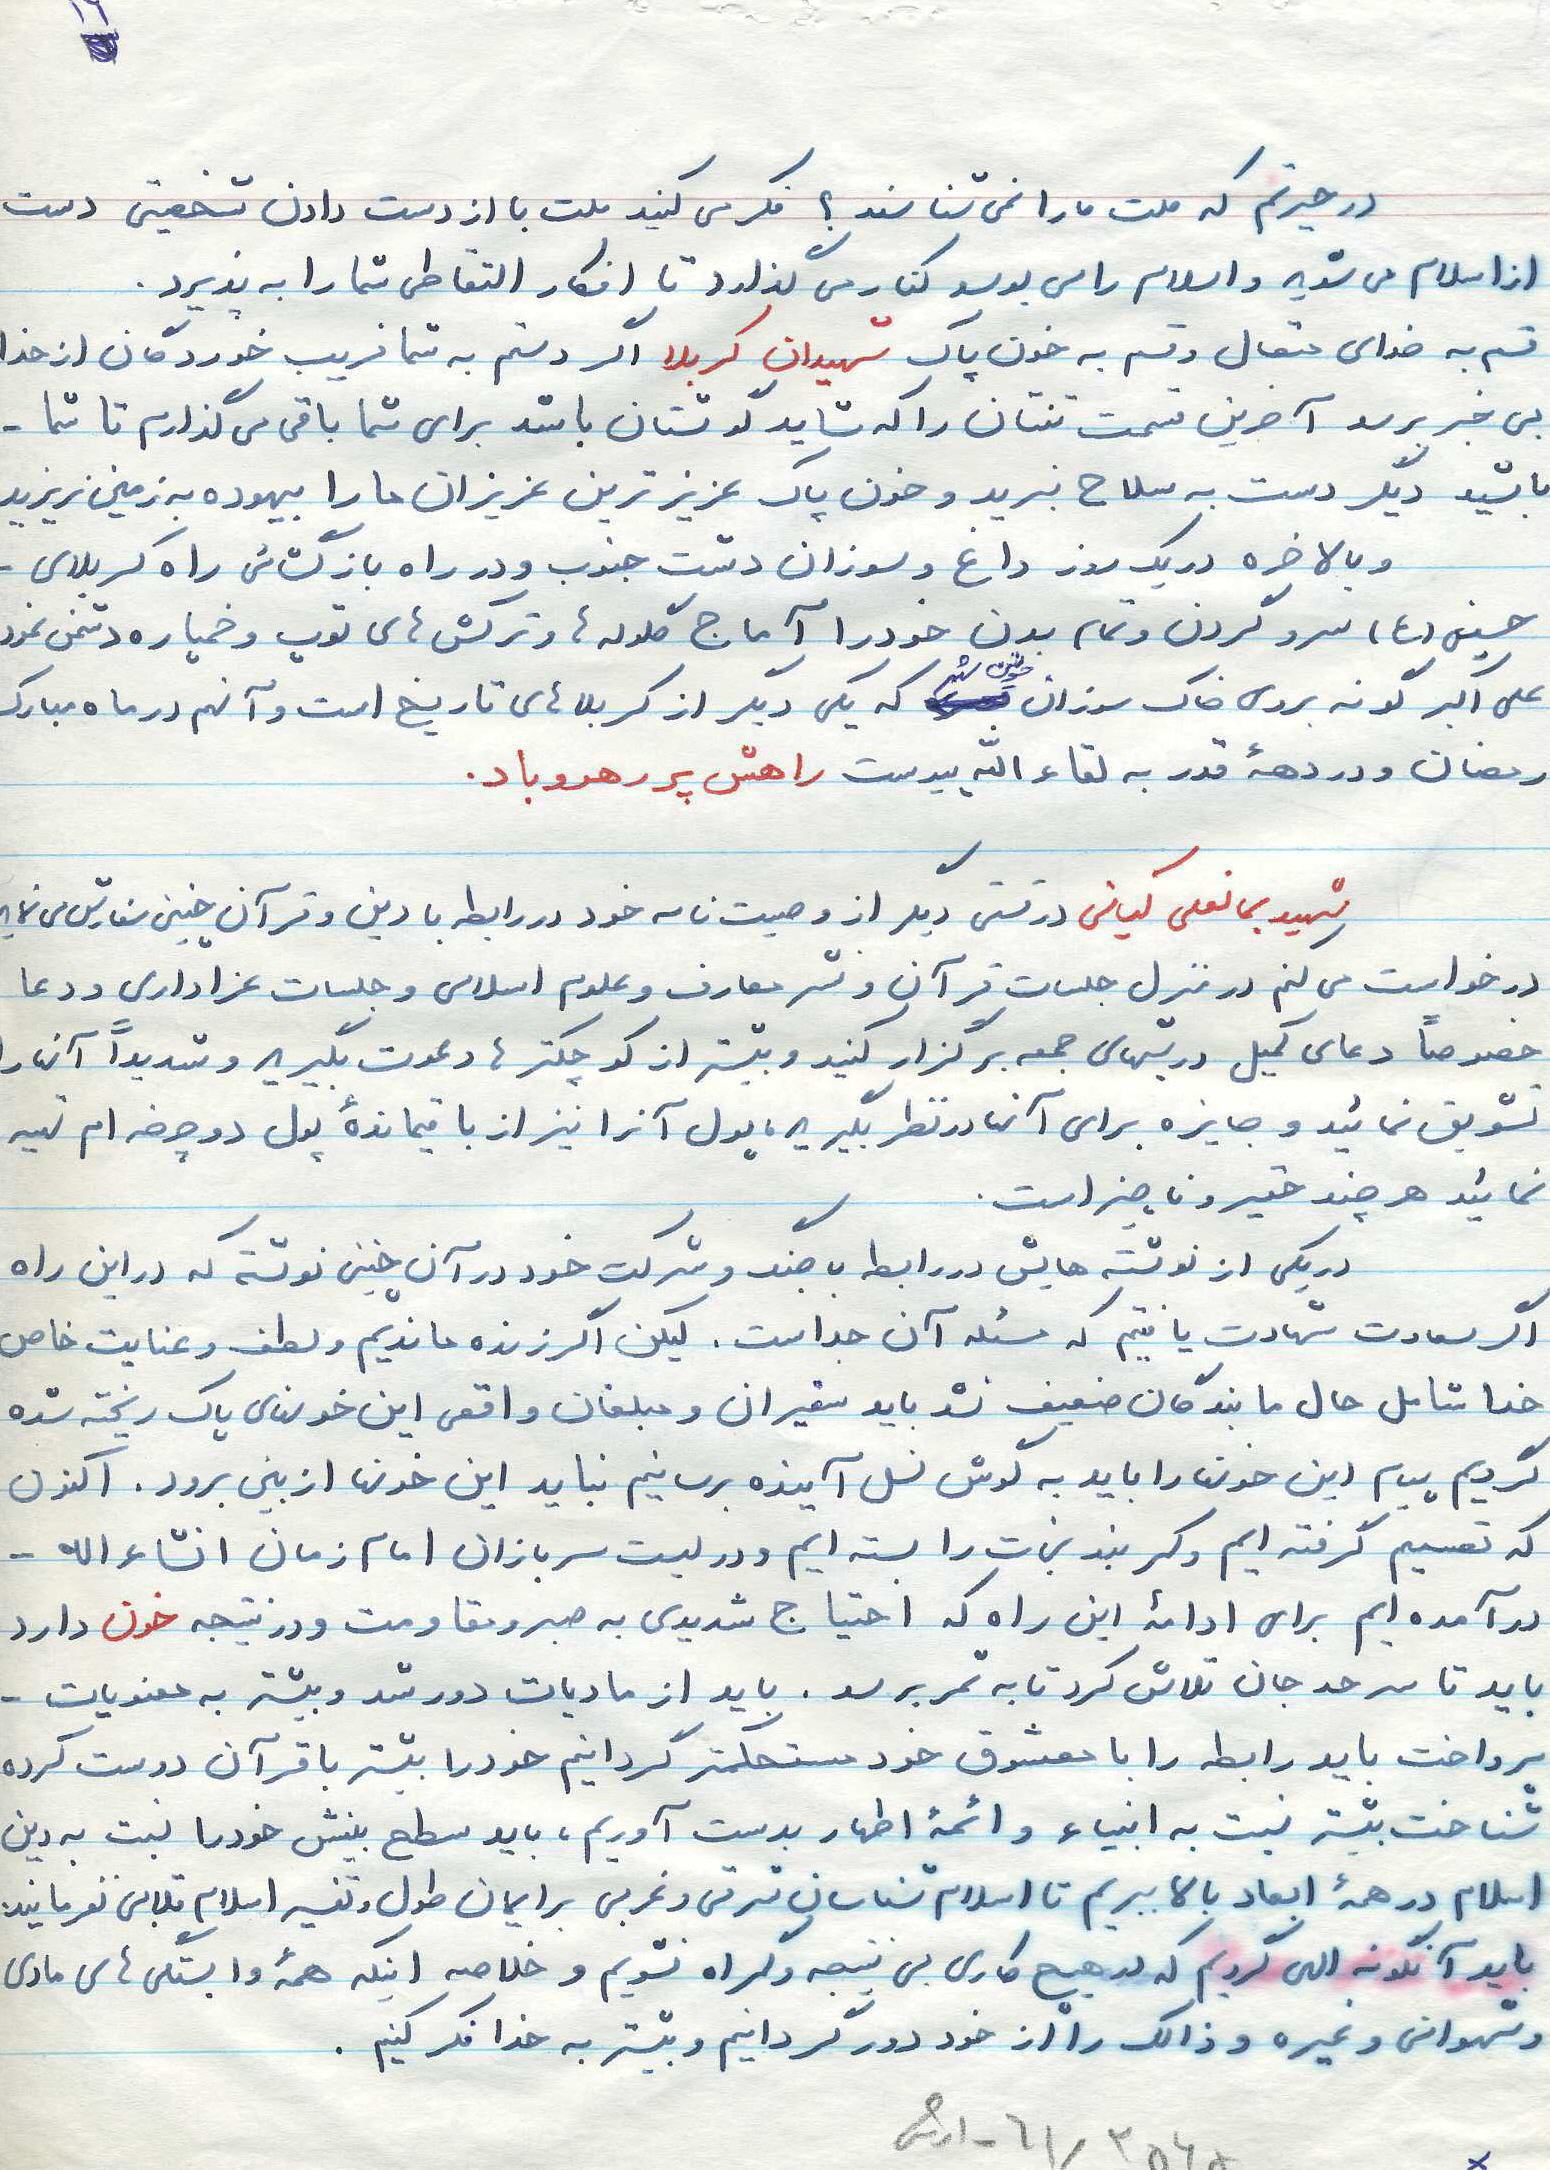 ۱۶
در حیرتم که ملت ما را نمی شناسند ؟ فکر می کنید ملت با از دست دادن شخصیتی دست
از اسلام می شوید و اسلام را می بوسد کنار می گذارد تا افکار التقاطی شما را به پذیرد .
قسم به خدای متعال و قسم به خون پاک شهیدان کربلا اگر دستم به شما فریب خوردگان از خدا
بی خبر برسد آخرین قسمت تنتان را که شاید گوشتان باشد برای شما باقی می گذارم تا شما -
باشید دیگر دست به سلاح نبرید و خون پاک عزیزترین عزیزان ما را بیهوده به زمین نریزید
و بالاخره در یک روز داغ و سوزان دشت جنوب و در راه بازگشائی راه کربلای -
حسین (ع) سر و گردن و تمام بدن خود را آماج گلوله ها و ترکش های توپ و خمپاره دشمن نمود
علی اکبر گونه بروی خاک سوزان خونین شهر که یکی دیگر از کربلاهای تاریخ است و آنهم در ماه مبارک
رمضان و در دههٔ قدر به لقاء الله پیوست راهش پر رهرو باد .
شهید بمانعلی کیانی در قسمتی دیگر از وصیت نامه خود در رابطه با دین و قرآن چنین سفارش می نماید
درخواست می کنم در منزل جلسات قرآن و نشر معارف و علوم اسلامی و جلسات عزاداری و دعا
خصوصاً دعای کمیل در شبهای جمعه برگزار کنید و بیشتر از کوچکترها دعوت بگیرید و شدیداً آنها را
تشویق نمائید و جایزه برای آنها در نظر بگیرید ، پول آنرا نیز از باقیماندهٔ پول دوچرخه ام تهیه
نمائید هر چند حقیر و ناچیز است .
در یکی از نوشته هایش در رابطه با جنگ و شرکت خود در آن چنین نوشته که در این راه
اگر سعادت شهادت یافتیم که مسئله آن جداست . لیکن اگر زنده ماندیم و لطف و عنایت خاص
خدا شامل حال ما بندگان ضعیف نشد باید سفیران و مبلغان واقعی این خونهای پاک ریخته شده
گردیم پیام این خونها را باید به گوش نسل آینده برسانیم نباید این خونها از بین برود . اکنون
که تصمیم گرفته ایم و کمربند نجات را بسته ایم و در لیست سربازان امام زمان انشاء الله -
درآمده ایم برای ادامهٔ این راه که احتیاج شدیدی به صبر و مقاومت و در نتیجه خون دارد
باید تا سرحد جان تلاش کرد تا به ثمر برسد . باید از مادیات دور شد و بیشتر به معنویات -
پرداخت باید رابطه را با معشوق خود مستحکمتر گردانیم خود را بیشتر با قرآن دوست کرده
شناخت بیشتر نسبت به انبیاء و ائمهٔ اطهار بدست آوریم ، باید سطح بینش خود را نسبت به دین
اسلام در همهٔ ابعاد بالا ببریم تا اسلام شناسان شرقی و غربی برایمان طول و تفسیر اسلام تلاش نفرمایند
باید آنگونه الهی گردیم که در هیچ کاری بی نتیجه و گمراه نشویم و خلاصه اینکه همهٔ وابستگی های مادی
و شهوانی و غیره و ذالک را از خود دور گردانیم و بیشتر به خدا فکر کنیم .